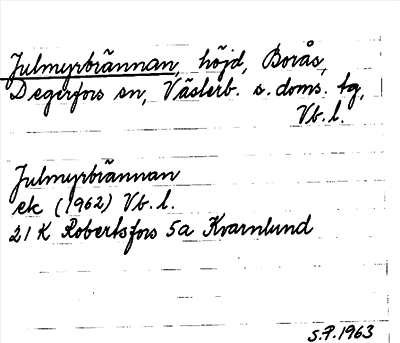 Julmyrbrännan, höjd, Borås,
Degerfors sn, Västerb. s. doms. tg,
Vb. l.
Julmyrbrännan
ek (1962) Vb. l.
21 K Robertsfors 5a Kvarnlund
S.P. 1963